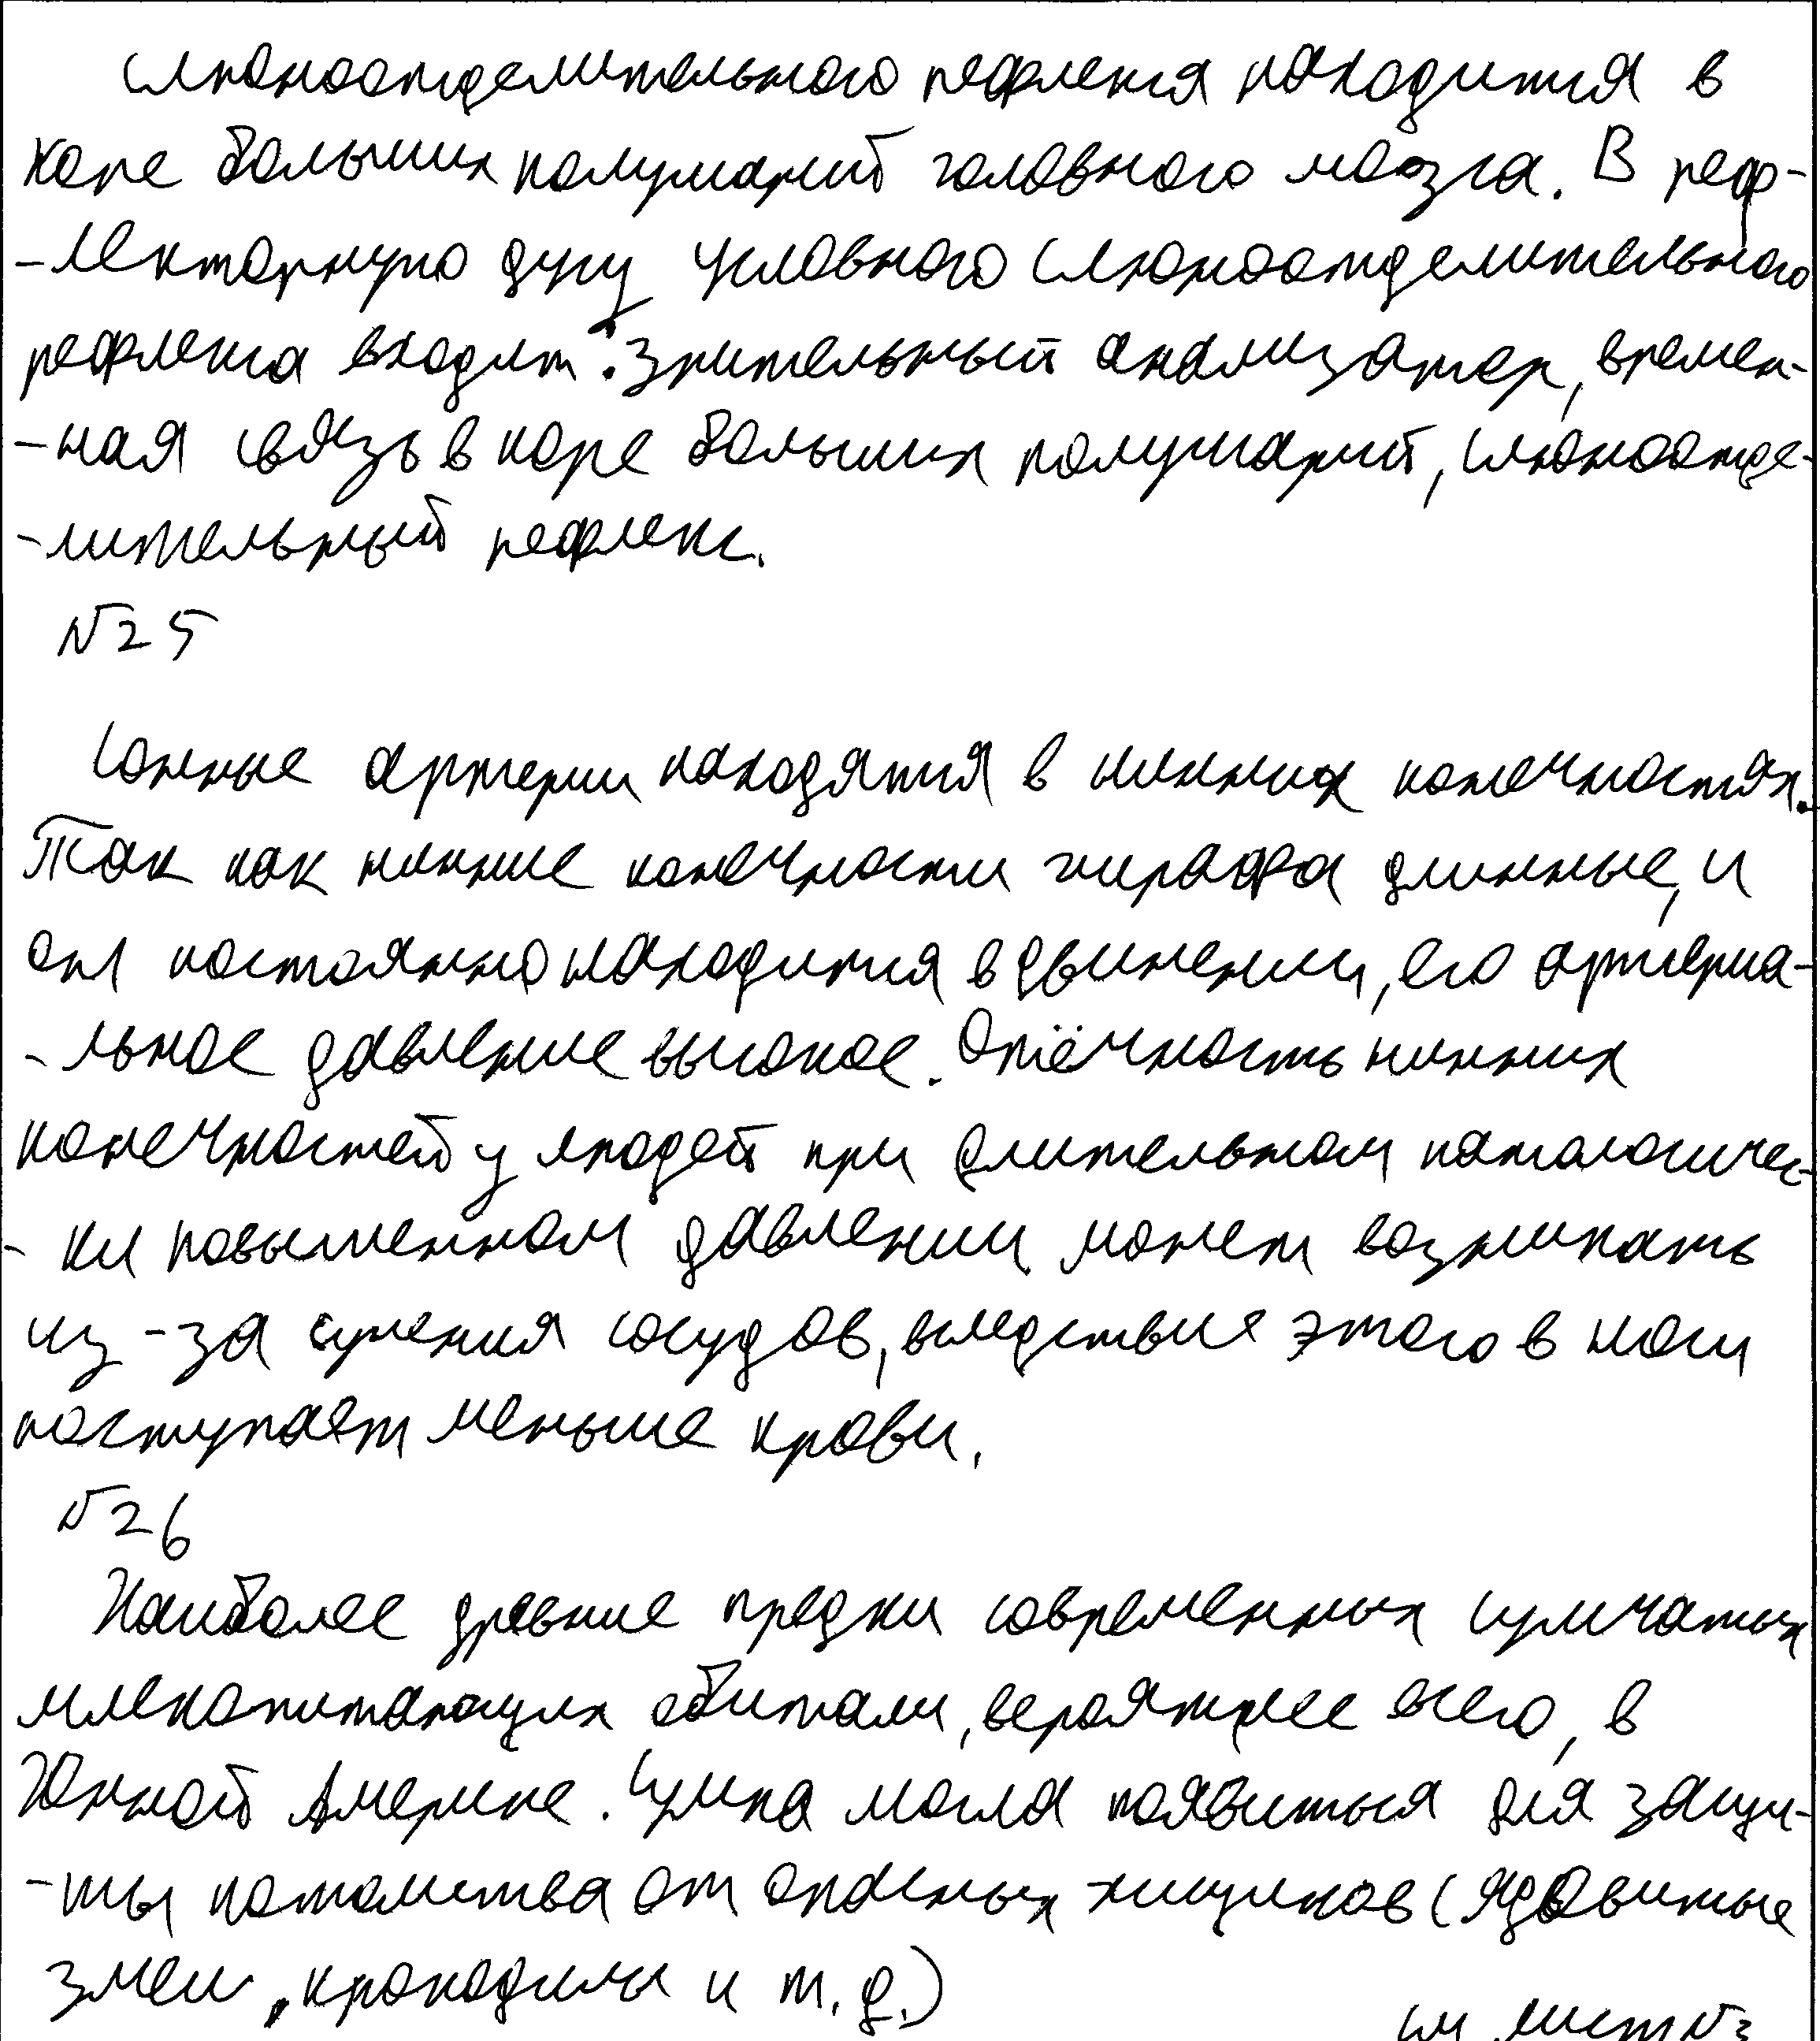 слюноотделительного рефлекса находится в
коре больших полушарий головного мозга. В реф-
-лекторную дугу условного слюноотделительного
рефлекса входит: зрительный анализатор, времен-
-ная связь в коре больших полушарий, слюноотде-
-лительный рефлекс.
№25
Сонные артерии находятся в нижних конечностях.
Так как нижние конечности жирафа длинные, и
он постоянно находится в движении, его артериа-
-льное давление высокое. Отёчность нижних
конечностей у людей при длительном патологичес-
-ки повышенном давлении может возникать
из-за сужения сосудов, вследствие этого в ноги
поступает меньше крови.
№26
Наиболее древние предки современных сумчатых
млекопитающих обитали, вероятнее всего, в
Южной Америке. Сумка могла появиться для защи-
-ты потомства от опасных хищников (ядовитые
змеи, крокодилы и т.д.)
см лист №3